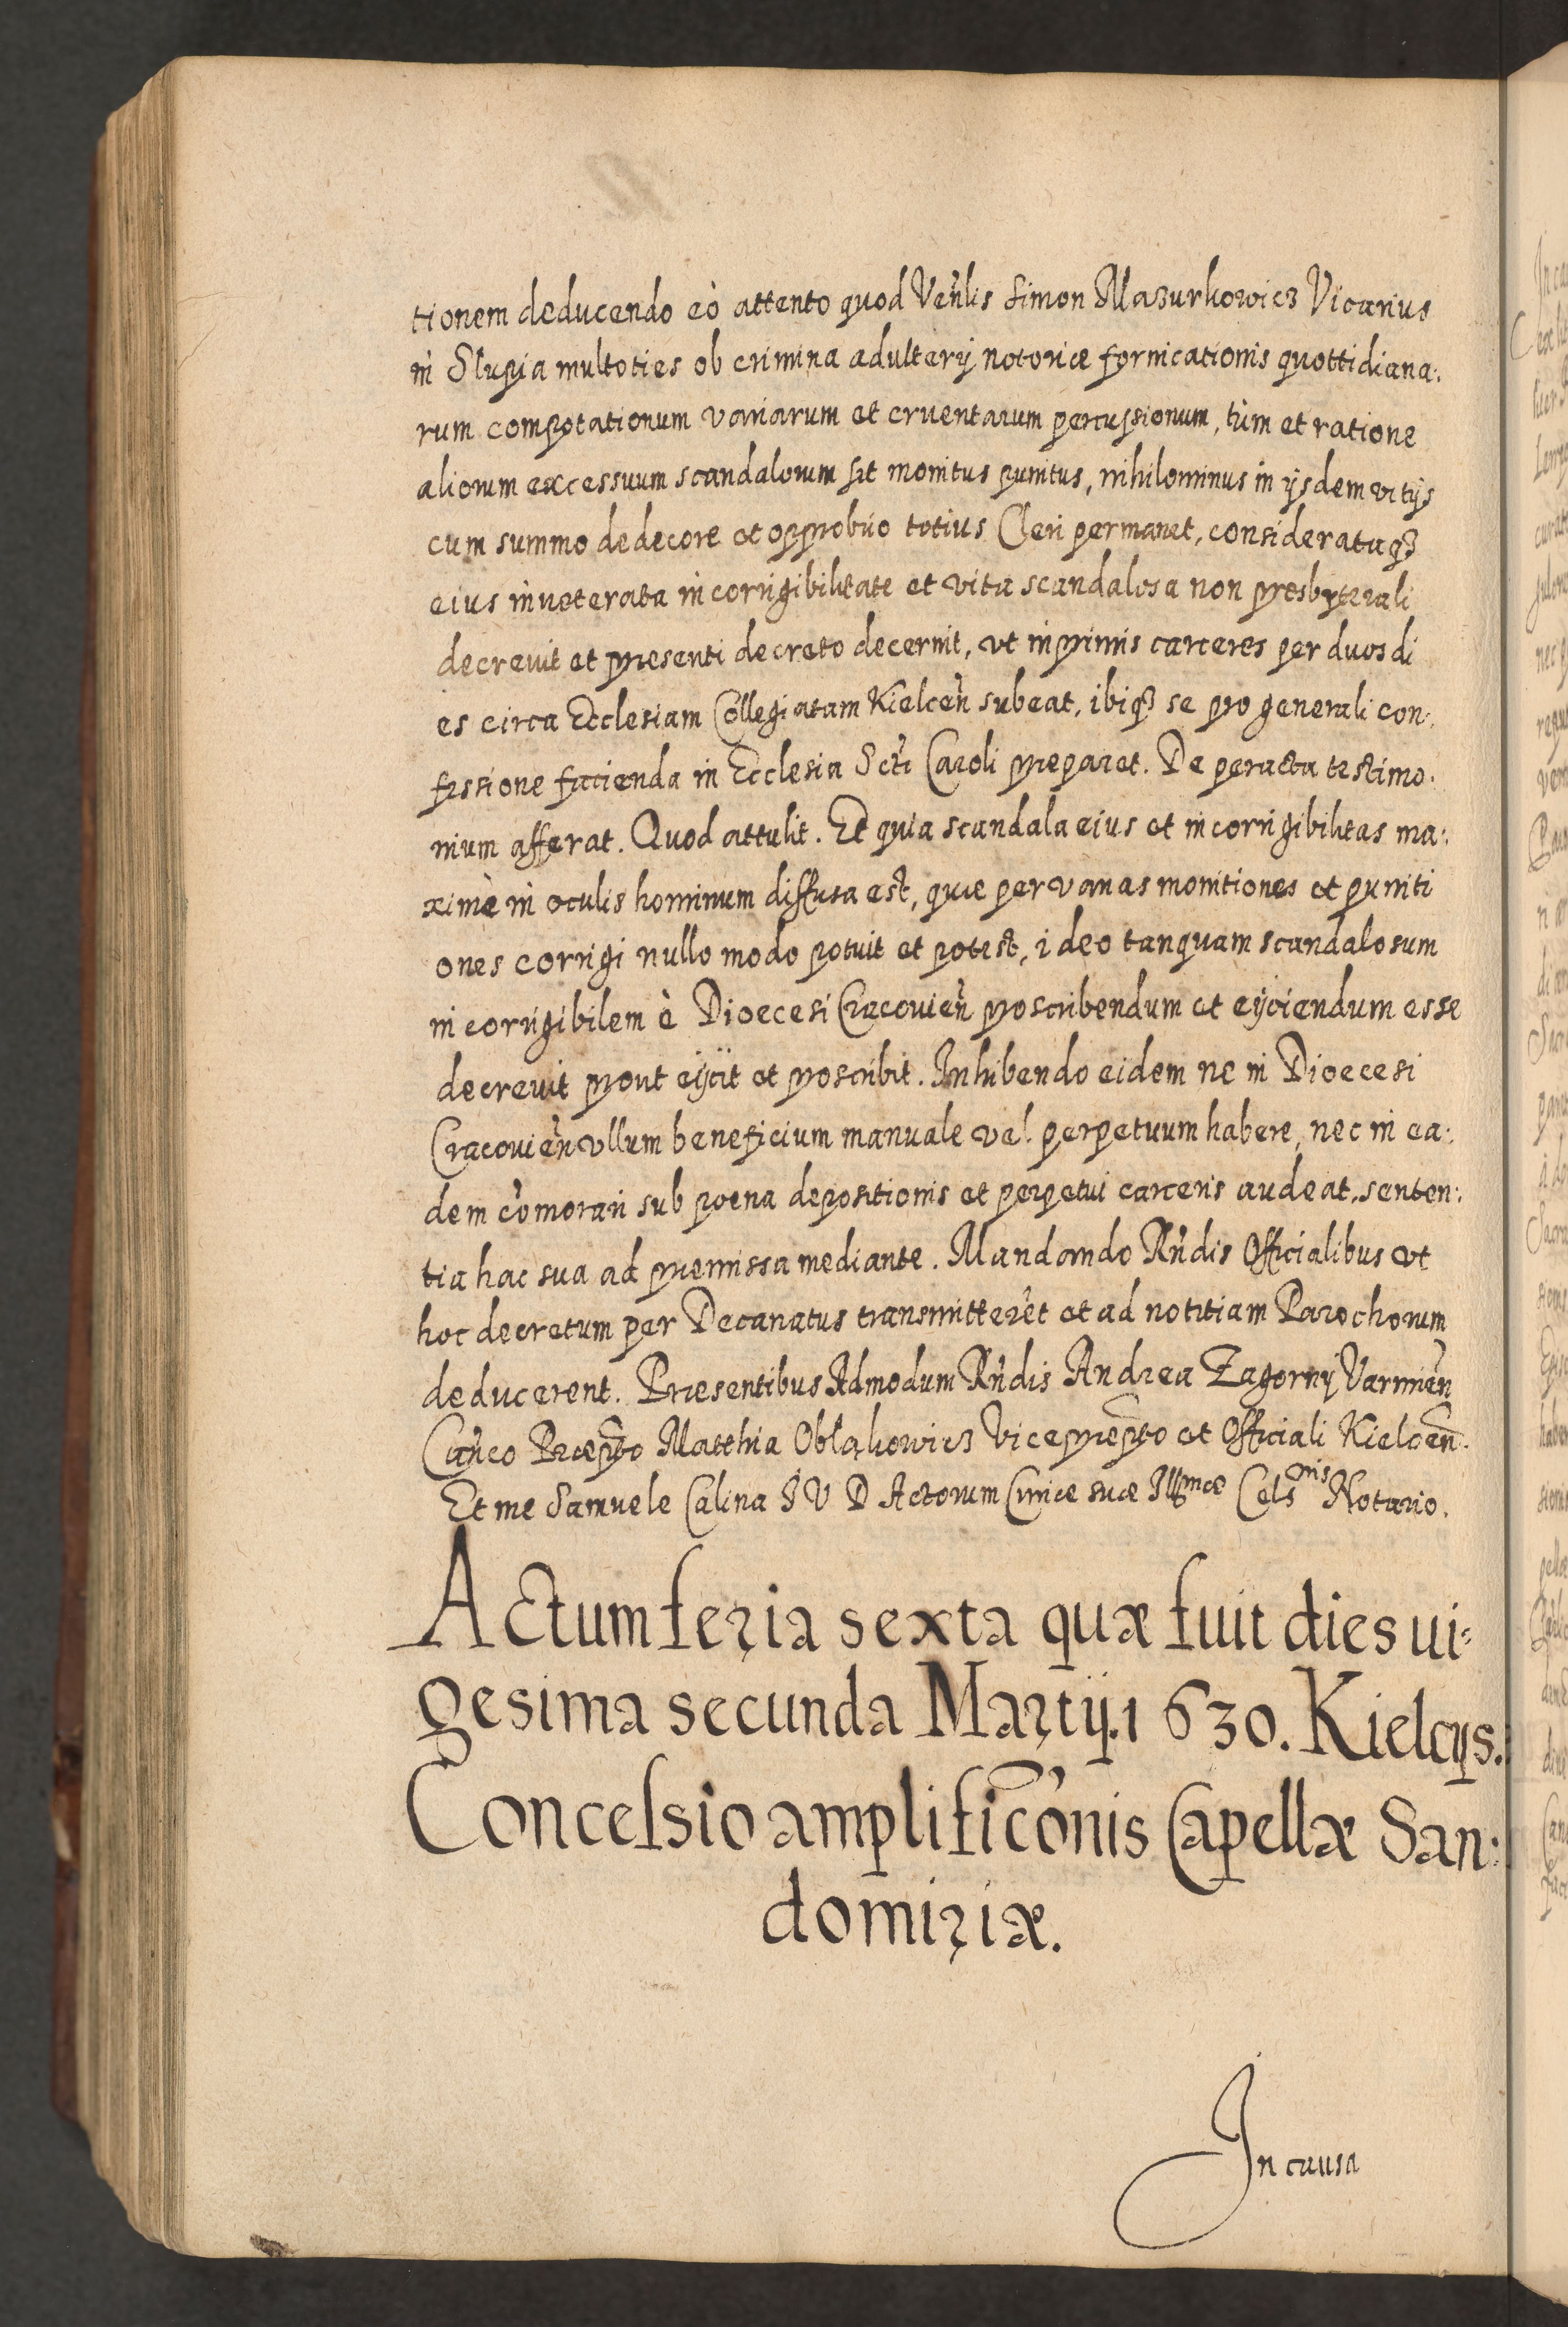 tionem deducendo eò attento quod Ven̄lis Simon Mazurkowicz Vicarius
in Słupia multoties ob crimina adulterij notoriæ fornicationis quottidiana:
rum compotationum variarum et cruentarum percussionum, tùm et ratione
aliorum excessuum scandalorum sit monitus punitus, nihilominus in ijsdem vitijs
cum summo dedecore et opprobrio totius Cleri permanet, considerataqȝ
eius inueterata incorrigibilitate et vita scandalosa non presbyterali
decreuit et præsenti decreto decernit, vt inprimis carceres per duos di
es circa Ecclesiam Collegiatam Kielcen̄ subeat, ibiqȝ se pro generali con:
fessione facienda in Ecclesia Scti Caroli præparet. De peracta testimo:
nium afferat. Quod attulit. Et quia scandala eius et incorrigibilitas ma:
ximè in oculis hominum diffusa est, quæ per varias monitiones et puniti
ones corrigi nullo modo potuit et potest, ideo tanquam scandalosum
incorrigibilem è Dioecesi Cracouien̄ proscribendum et eijciendum esse
decreuit prout eijcit et proscribit. Inhibendo eidem ne in Dioecesi
Cracouien̄ vllum beneficium manuale vel perpetuum habere, nec in ea:
dem com̄orari sub poena depositionis et perpetui carceris audeat, senten:
tia hac sua ad præmissa mediante. Mandando Rn̄dis Officialibus vt
hoc decretum per Decanatus transmitteret et ad notitiam Parochorum
deducerent. Præsentibus Admodum Rn̄dis Andrea Zagorny Varmien̄
Can̄co Præpto Matthia Obłąkowicz Vicepræpto et Officiali Kielcen̄.
Et me Samuele Calina I V D Actorum Curiæ suæ Illmæ Celsnis Notario.
Actum feria sexta quæ fuit dies ui=
gesima secunda Martij. 1630. Kielcijs.
Concessio amplificōnis Capellæ San:
domiriæ.
In causa